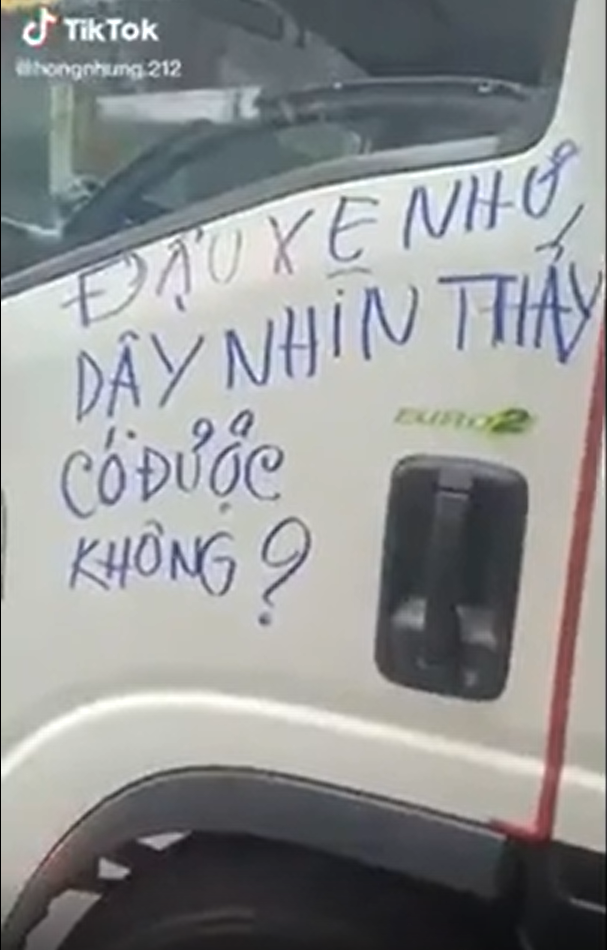 TikTok
@hongnhung.212
ĐẬU XE NHƯ
DÂY NHÌN THẤY
CÓ ĐƯỢC
KHÔNG?
EURO2